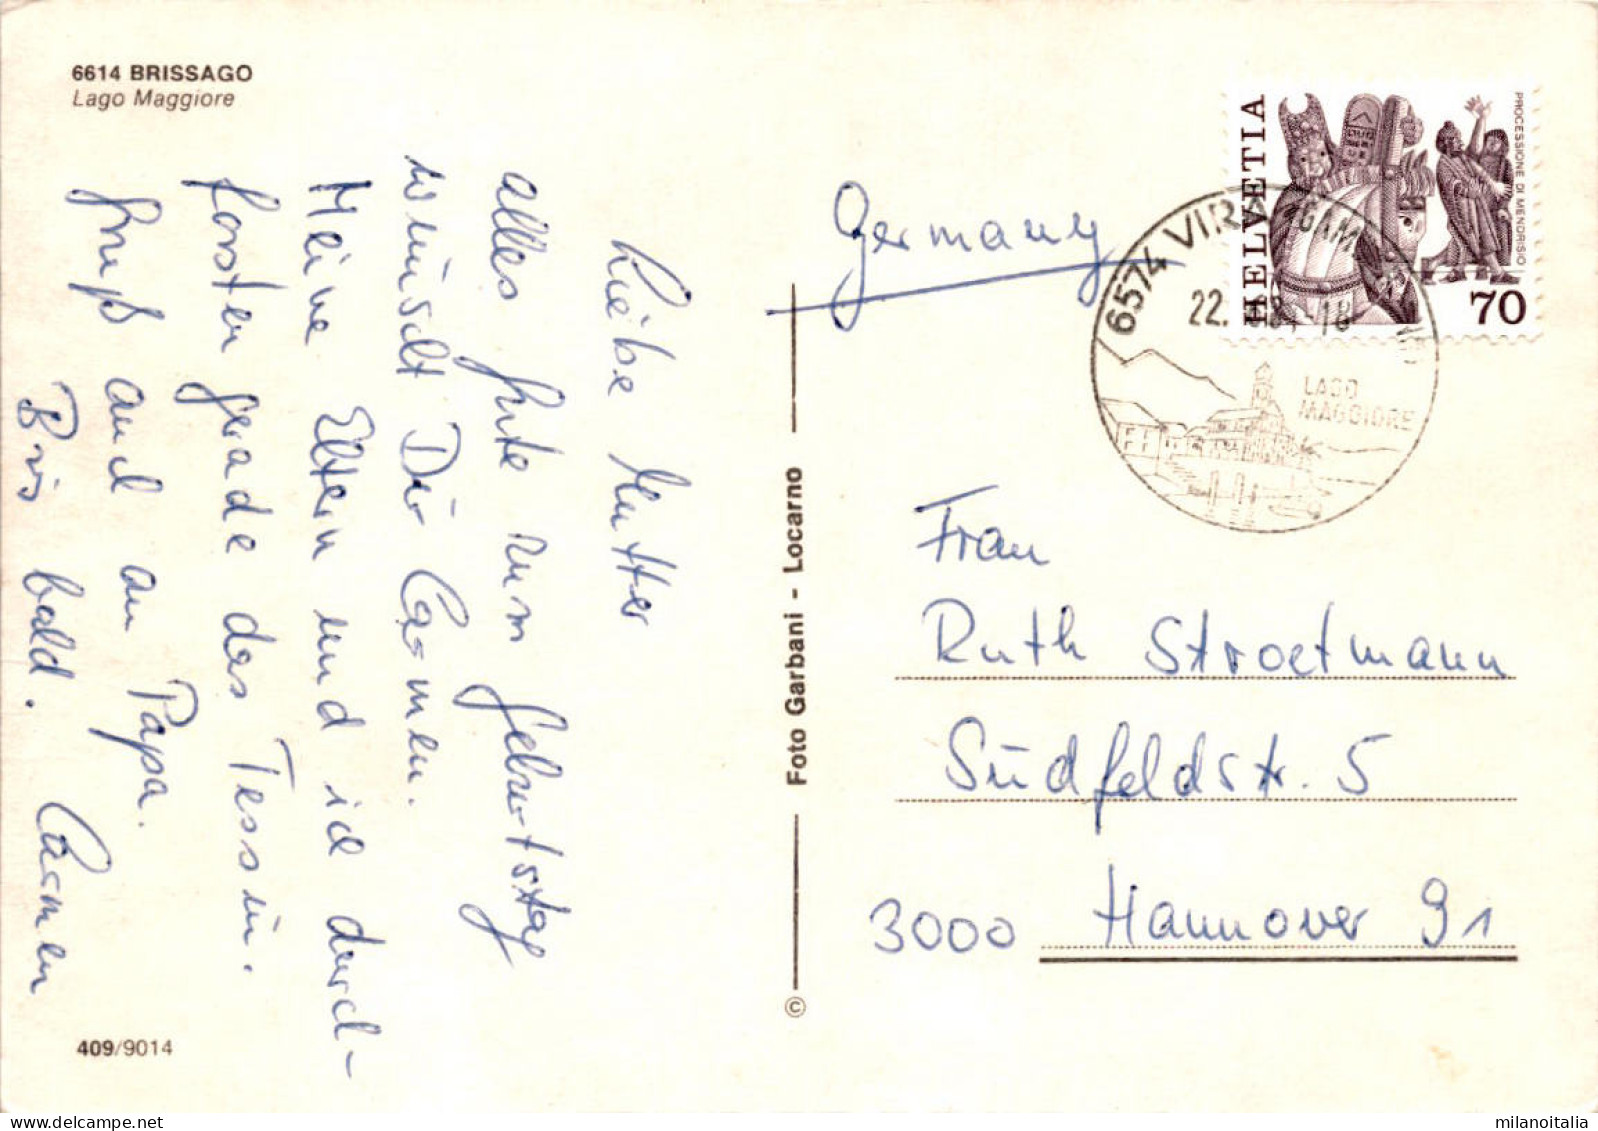 6614 BRISSAGO
Lago Maggiore
Liebe Mutter
alles Gute zum Geburtstag
wünscht Dir Carmen.
Meine Eltern und ich durch-
forsten gerade das Tessin.
Gruß auch an Papa.
Bis bald. Carmen
409/9014
Foto Garbani - Locarno
©
Germany
HELVETIA
PROCESSIONE DI MENDRISIO
70
6574 VIRA
22.
18
LAGO
MAGGIORE
Frau
Ruth Stroetmann
Südfeldstr. 5
3000 Hannover 91
milanoitalia